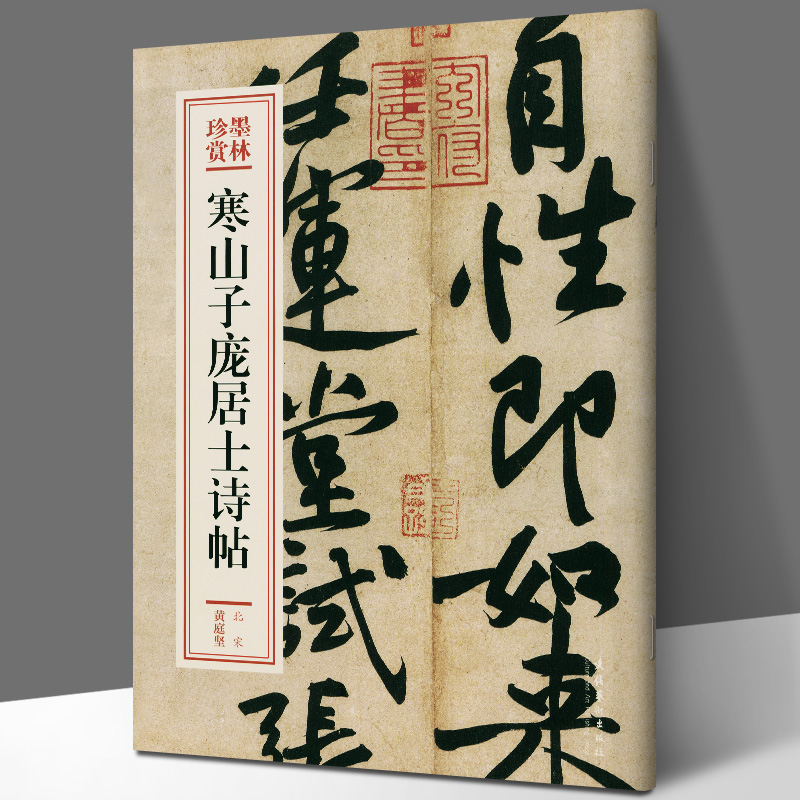 自性即如来
任運堂試張
墨林
珍赏
寒山子庞居士诗帖
北宋
黄庭坚